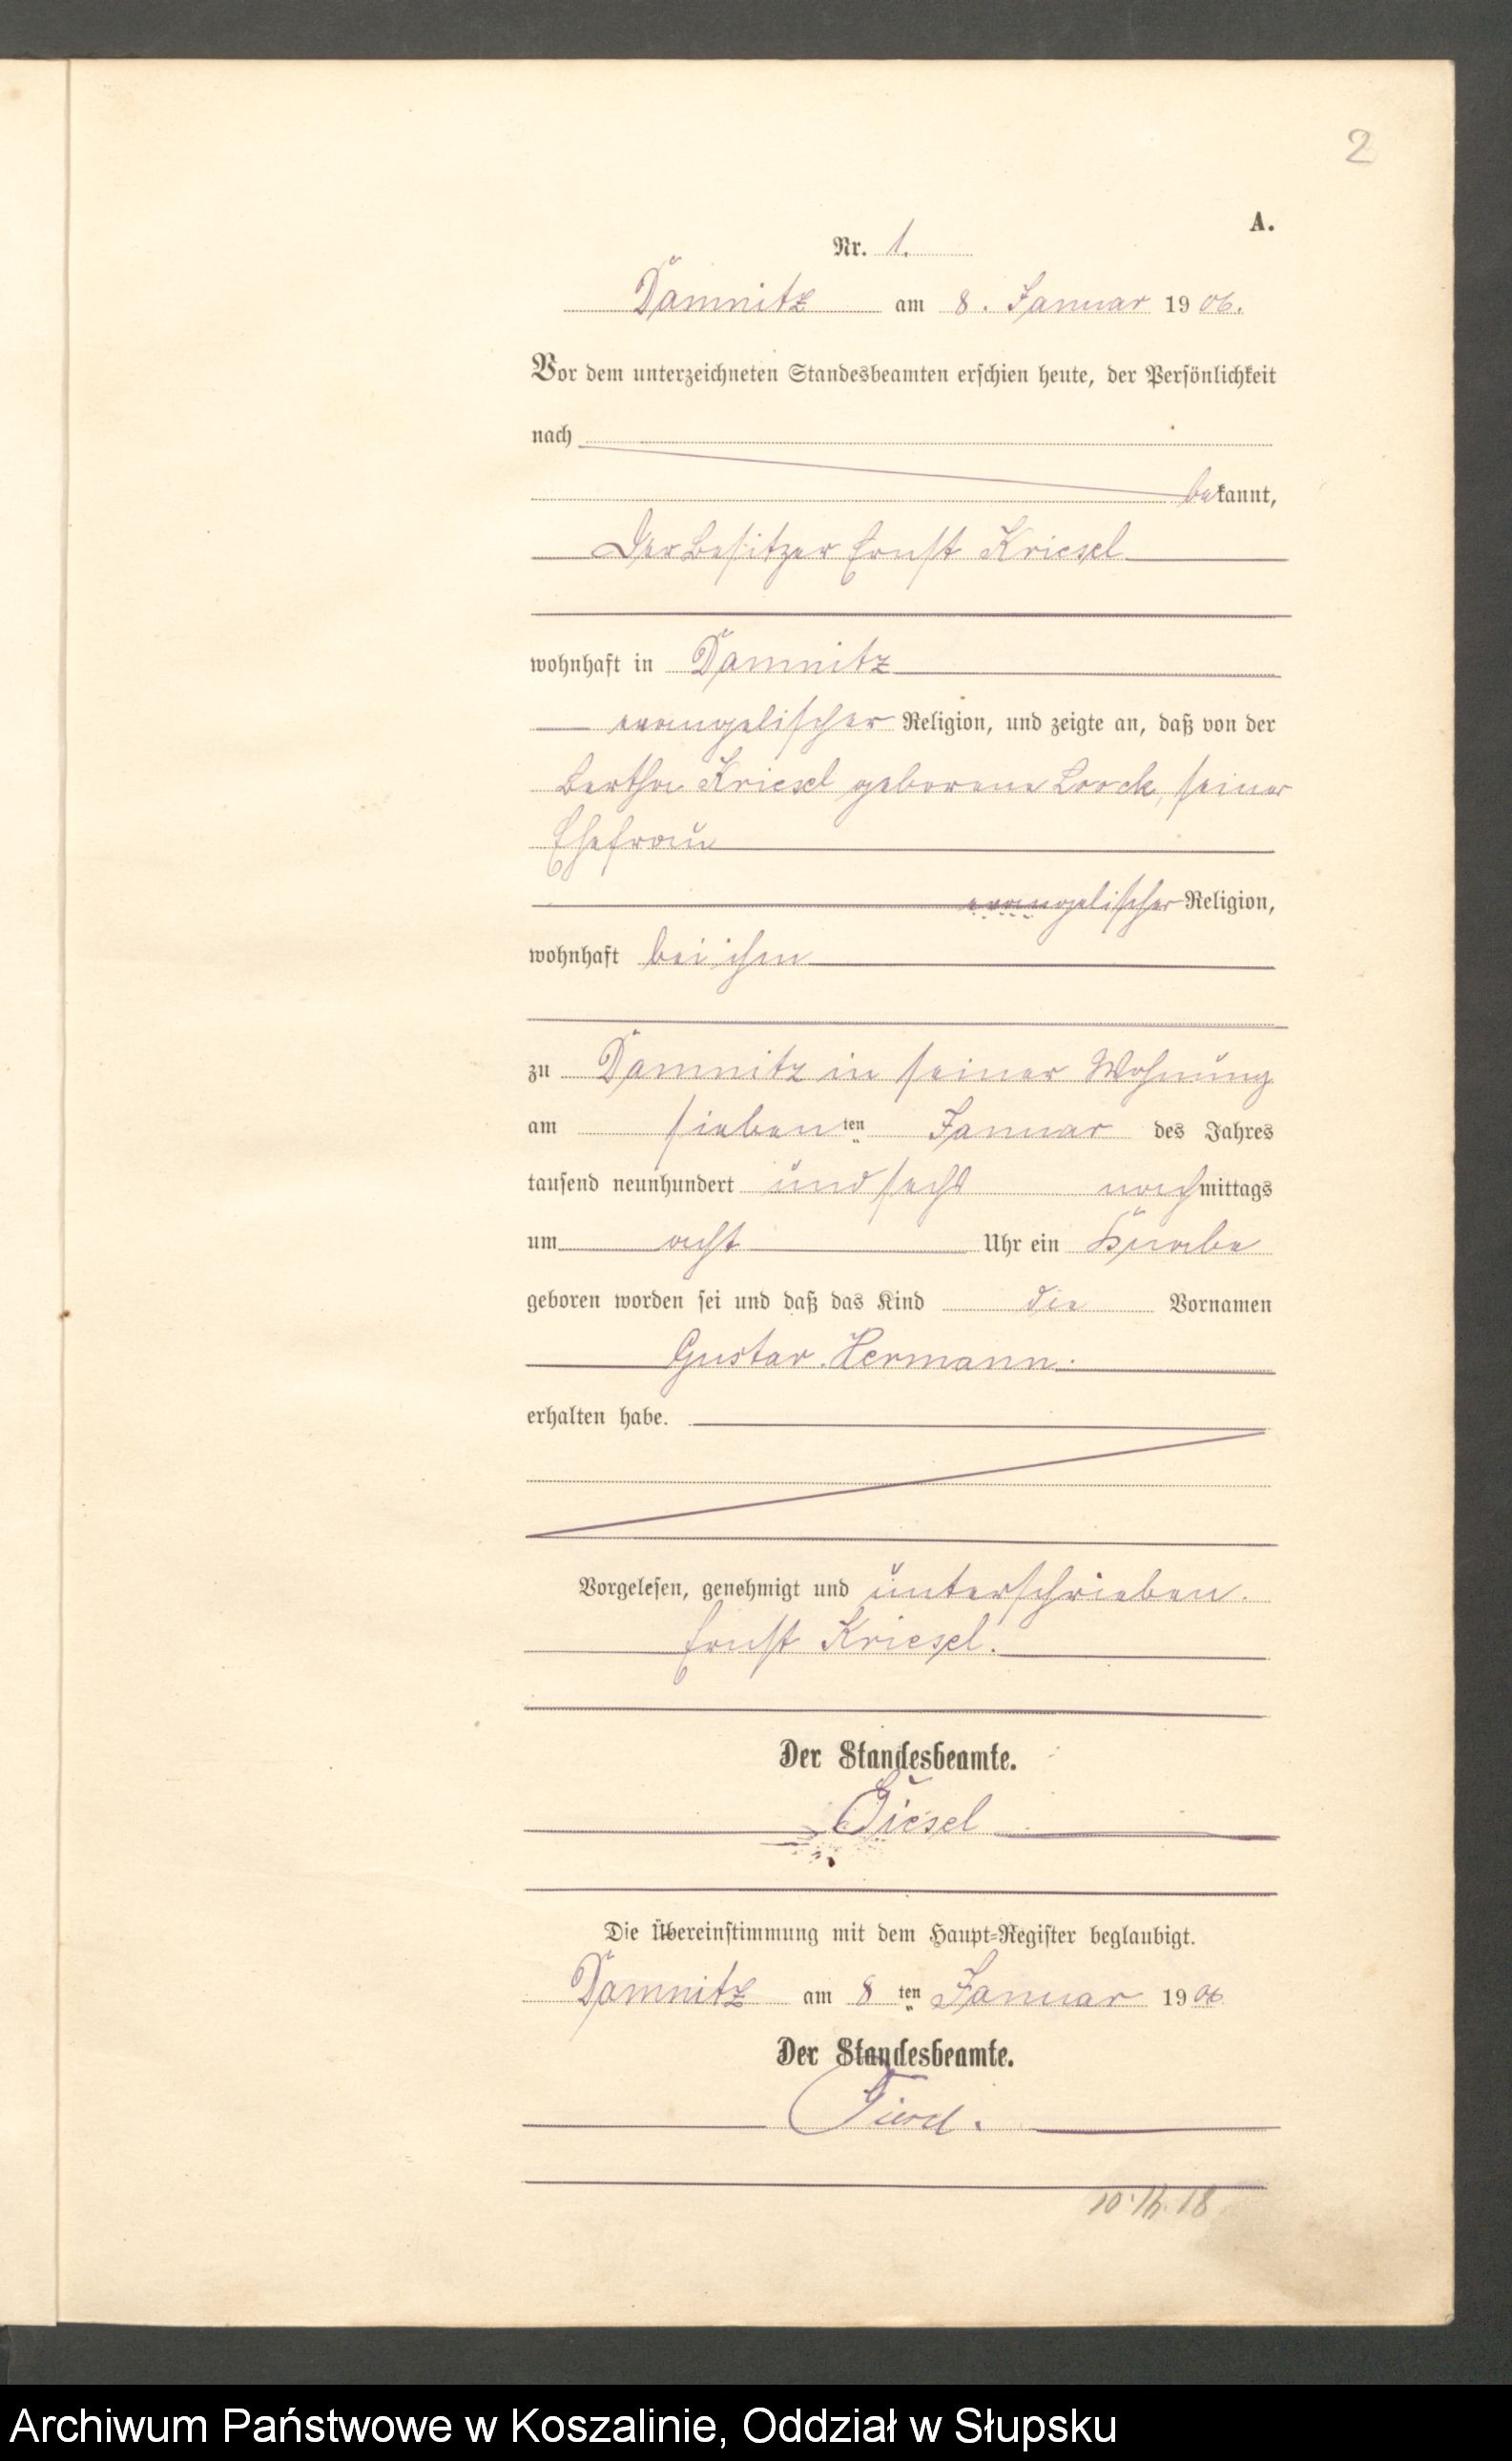 2
A.
Nr. 1.
Damnitz am 8. Januar 1906.
Vor dem unterzeichneten Standesbeamten erschien heute, der Persönlichkeit
nach
bekannt,
Der Besitzer Ernst Kriesel
wohnhaft in Damnitz
evangelischer Religion, und zeigte an, daß von der
Bertha Kriesel geborene Loock, seiner
Ehefrau
evangelischer Religion,
wohnhaft bei ihm
zu Damnitz in seiner Wohnung
am siebenten Januar des Jahres
tausend neunhundert und sechs nachmittags
um acht Uhr ein Knabe
geboren worden sei und daß das Kind die Vornamen
Gustav Hermann.
erhalten habe.
Vorgelesen, genehmigt und unterschrieben.
Ernst Kriesel.
Der Standesbeamte.
Die Übereinstimmung mit dem Haupt-Register beglaubigt.
Damnitz am 8ten Januar 1906
Der Standesbeamte.
Archiwum Państwowe w Koszalinie, Oddział w Słupsku